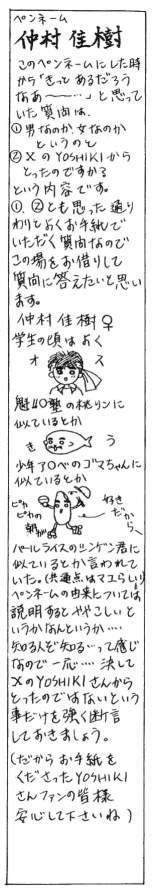 ペンネーム
仲村 佳樹
このペンネームにした時
から「きっと あるだろう
なあ〜〜…」と思って
いた質問は、
①男なのか、女なのか
というのと
②XのYOSHIKIから
とったのですか?
という内容です。
①、②とも思った通り
わりとよくお手紙で
いただく質問なので
この場をお借りして
質問に答えたいと思い
ます。
仲村 佳樹♀
学生の頃は よく
オス
魁!!〇塾の桃リンに
似ているとか
きゅう
少年ア〇ベのゴマちゃんに
似ているとか
ピカピカの
朝が
好き
だから
パールライスのシンゲン君に
似ているとか言われて
いた。(共通点はマユらしい)
ペンネームの由来については
説明すると ややこしいと
いうかなんというか…
知る人ぞ知るいって感じ
なので一応…決して
XのYOSHIKIさんから
とったのではないという
事だけを強く断言
しておきましょう。
(だから お手紙を
くださったYOSHIKI
さんファンの皆様
安心して下さいね)